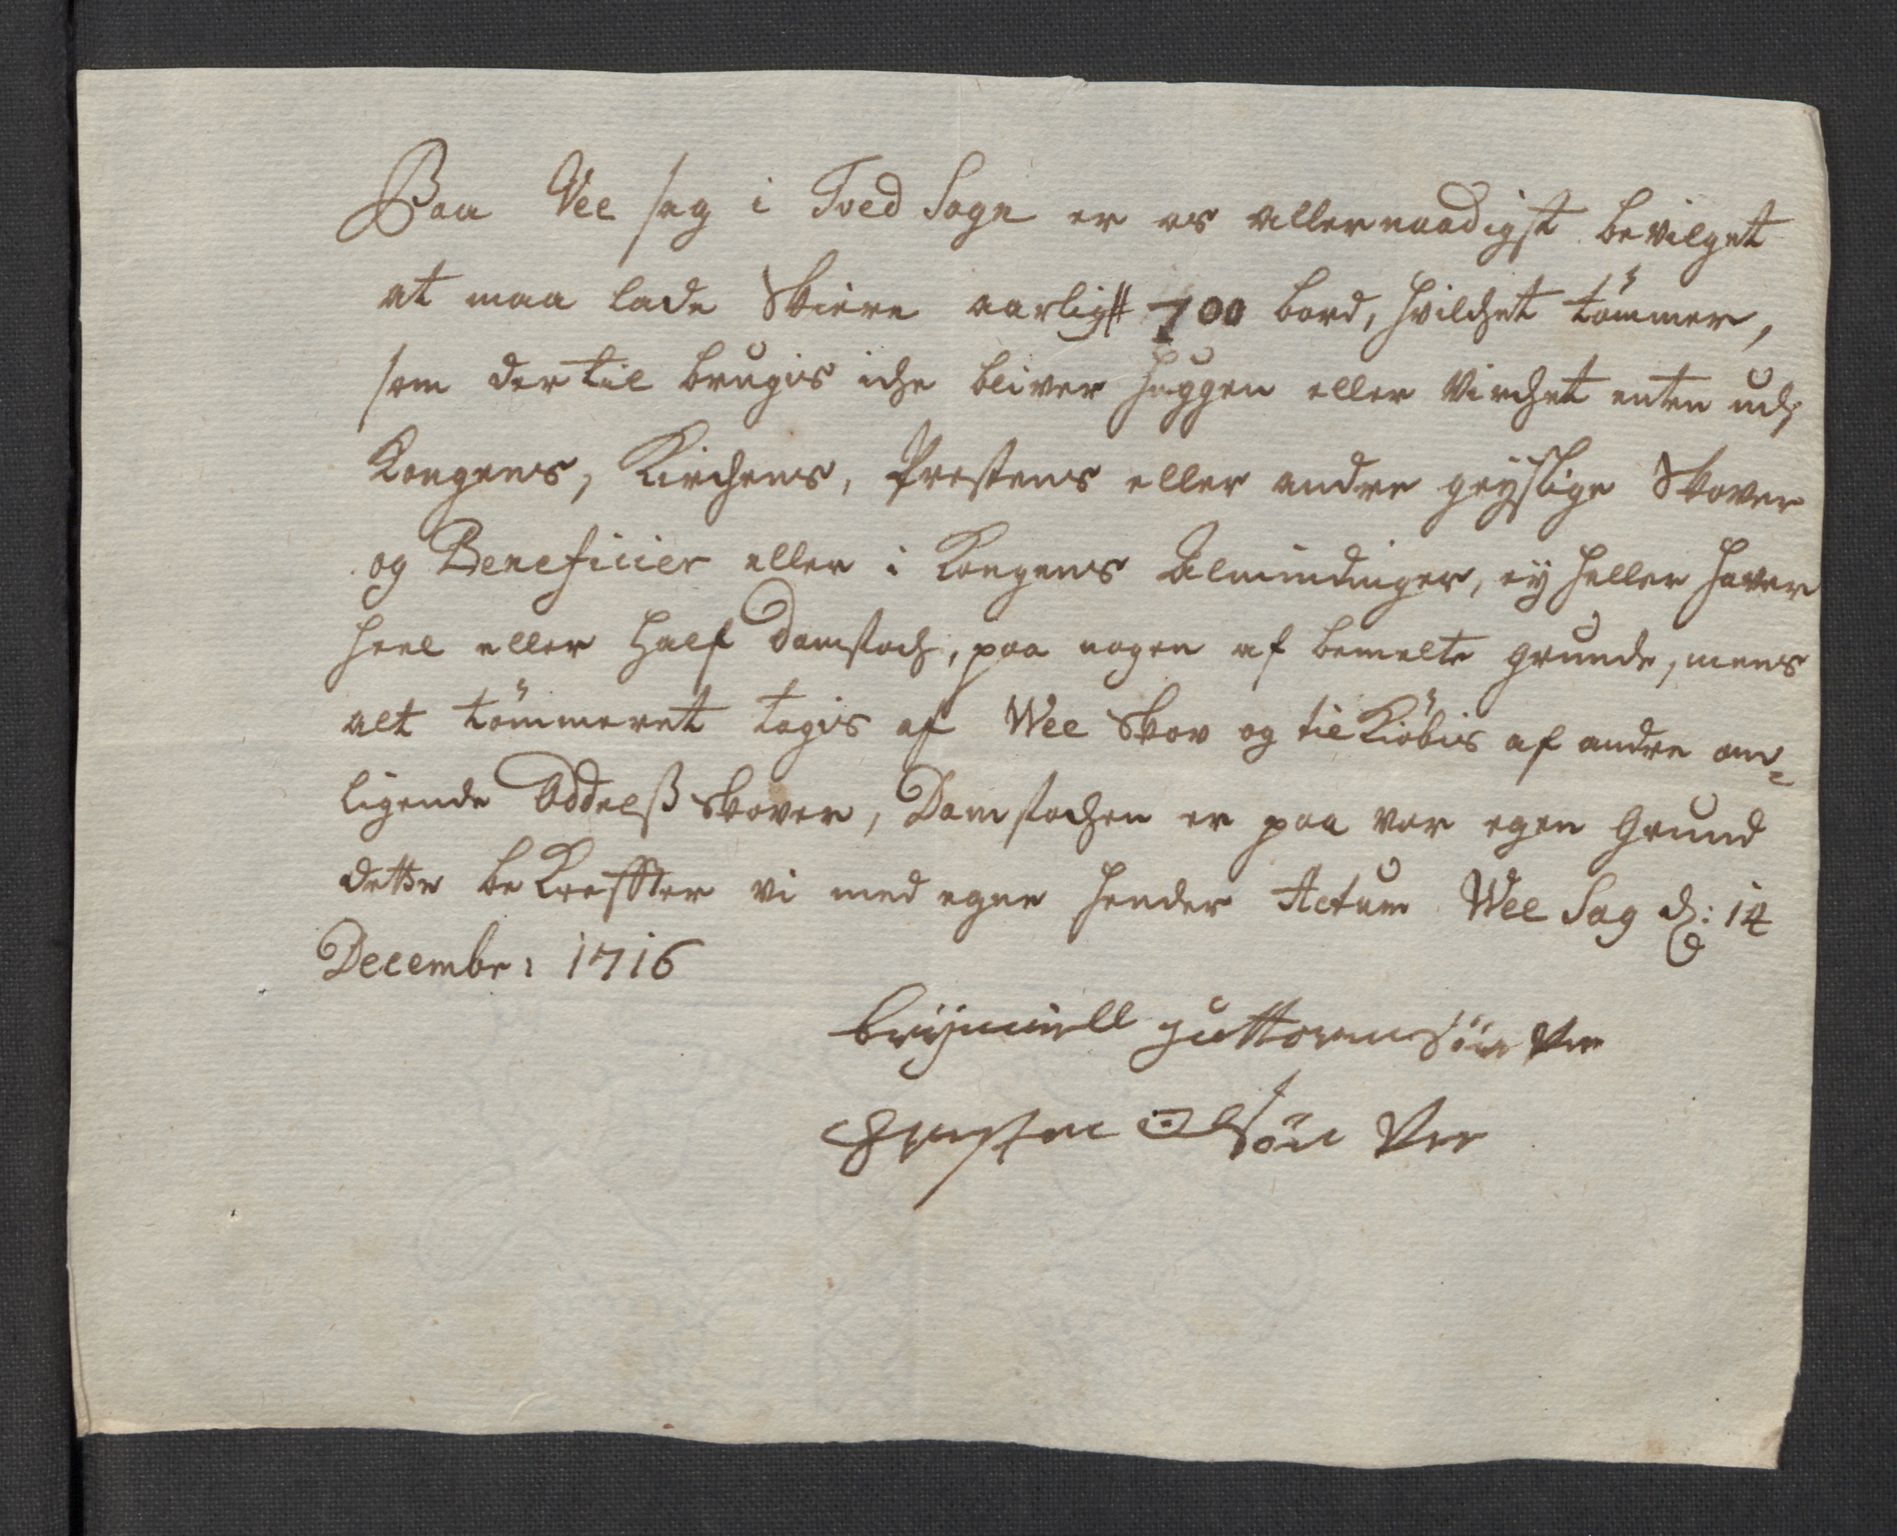 Paa Vee sag i Tved Sogn er os allernaadigst bevilget
at maa lade Skiere aarligt 700 bord, hvilchet tömmer,
som der til brugis iche bliver huggen eller Virchet enten udj
Kongens, Kirchens, Prestens eller andre geystlige Skover
og Beneficier eller i Kongens Almindinger, ey heller haver
heel eller half Damstoch, paa nogen af bemelte grunde, mens
alt tömmeret tagis af Wee Skov og til Kiöbis af andre om-
ligende Oddelß skover, Damstochen er paa vor egen Grund
dette be Kreffter vi med egne hender Actum Wee Sag d: 14
Decembr: 1716
brijniell guttormsön Vee
Olsön Vee